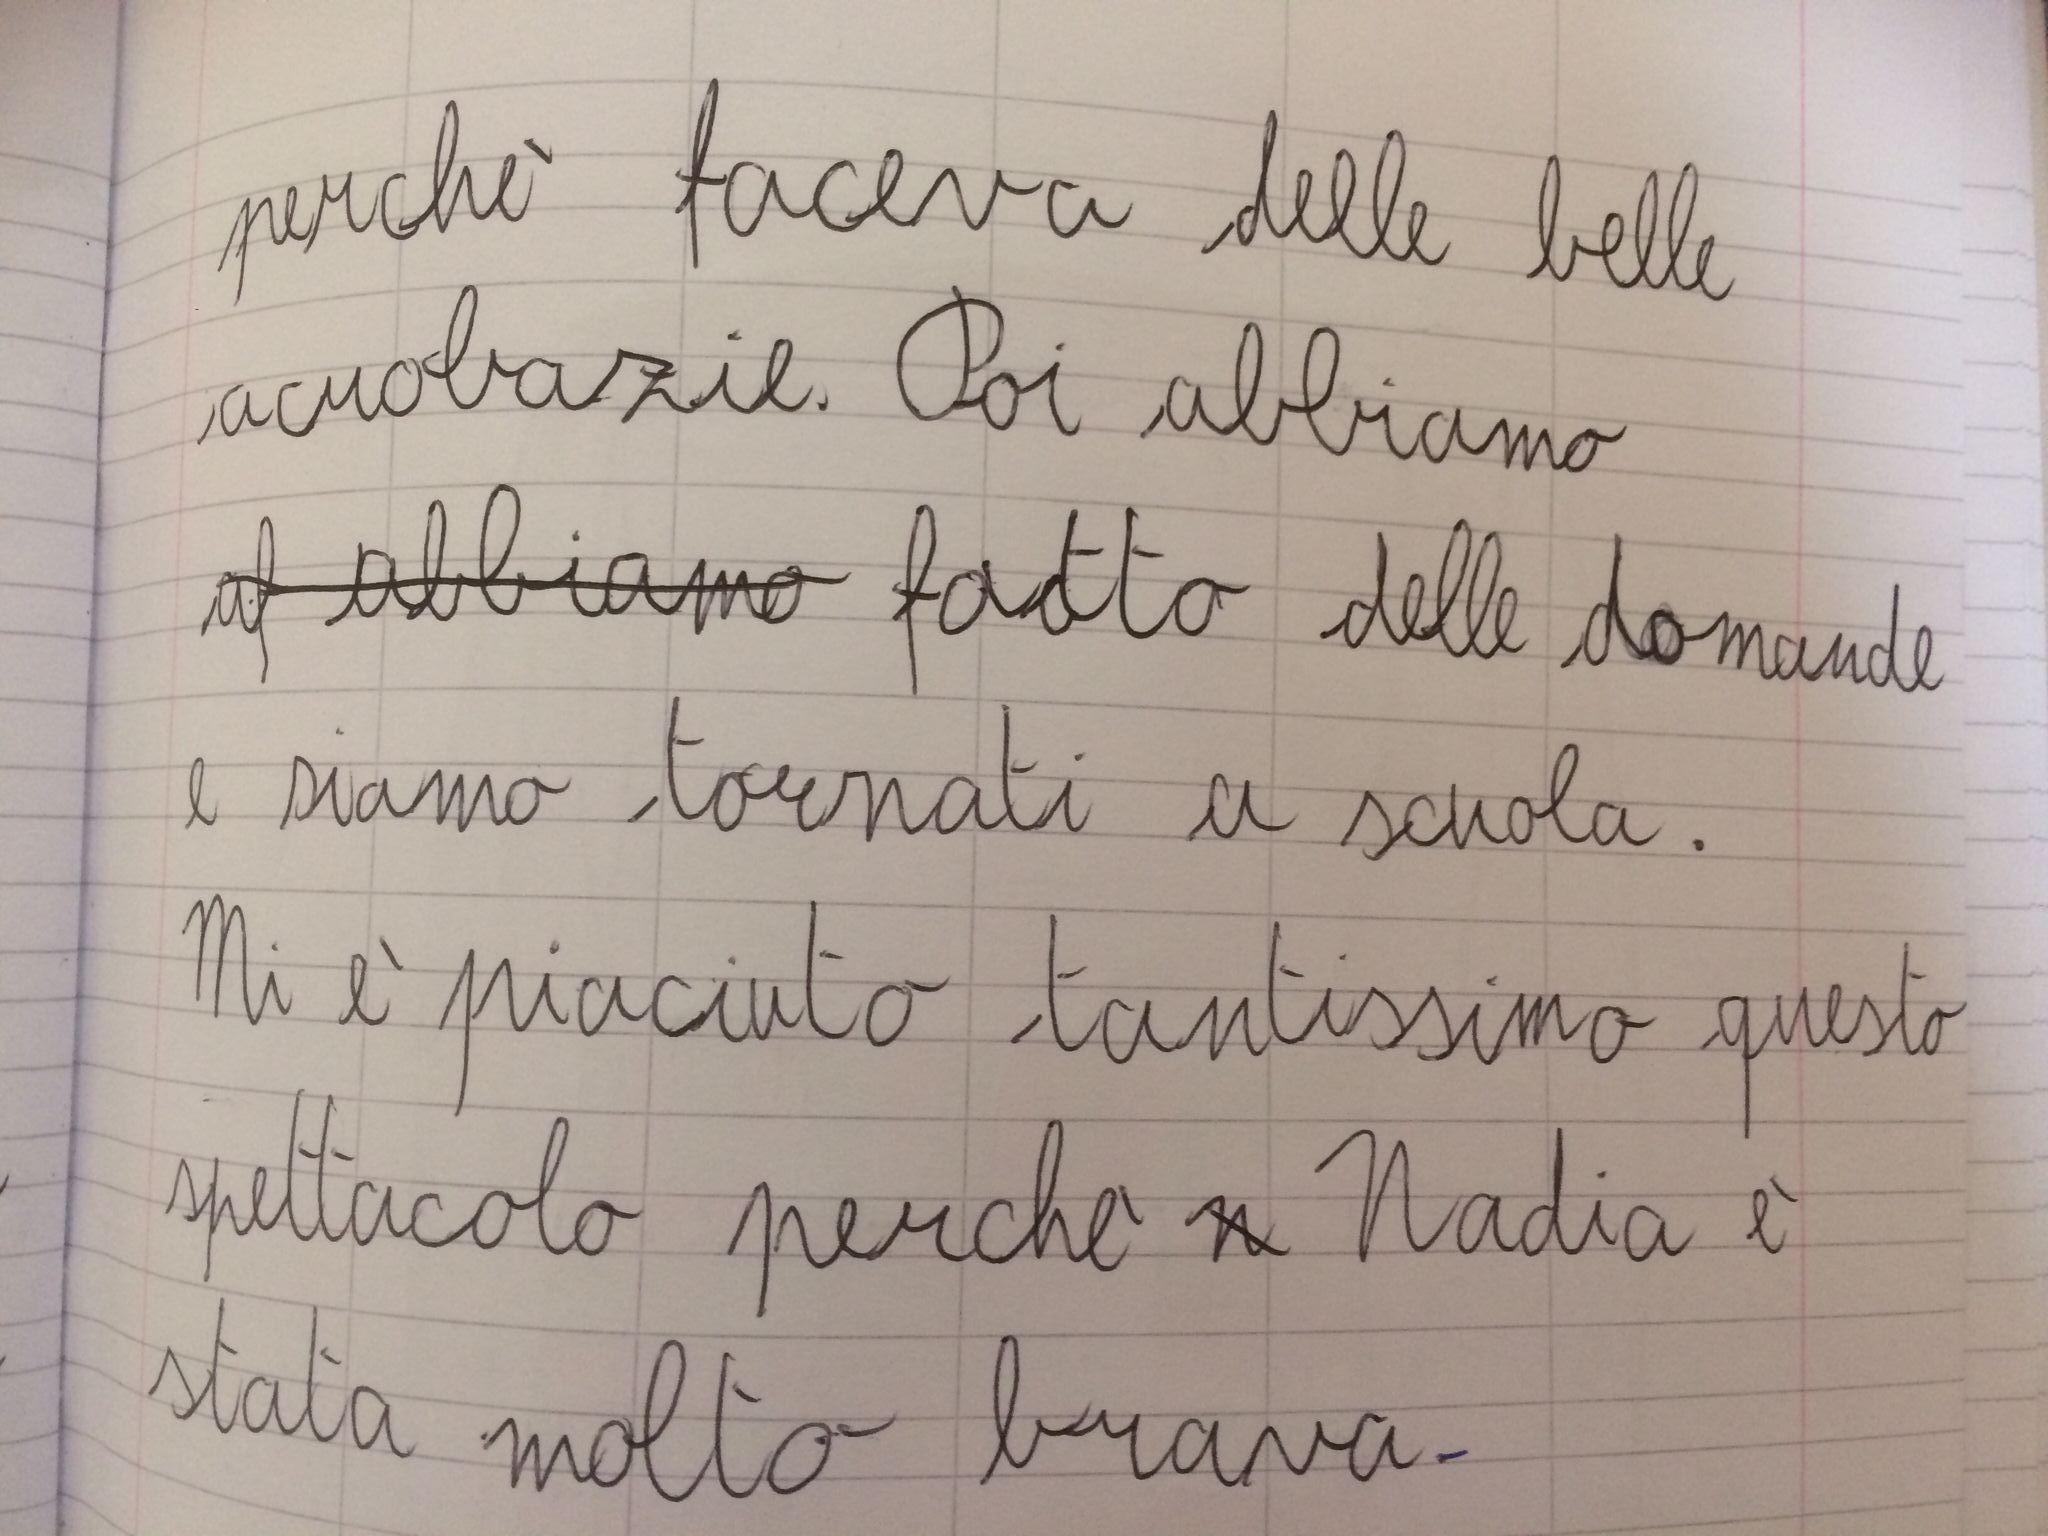 perchè faceva delle belle
acrobazie. Poi abbiamo
af abbiamo fatto delle domande
e siamo tornati a scuola.
Mi è piaciuto tantissimo questo
spettacolo perchè n Nadia è
stata molto brava.